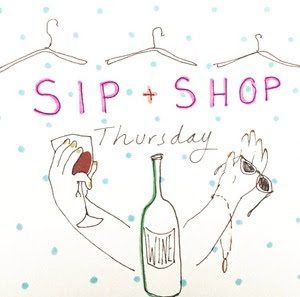 SIP + SHOP
Thursday
WINE